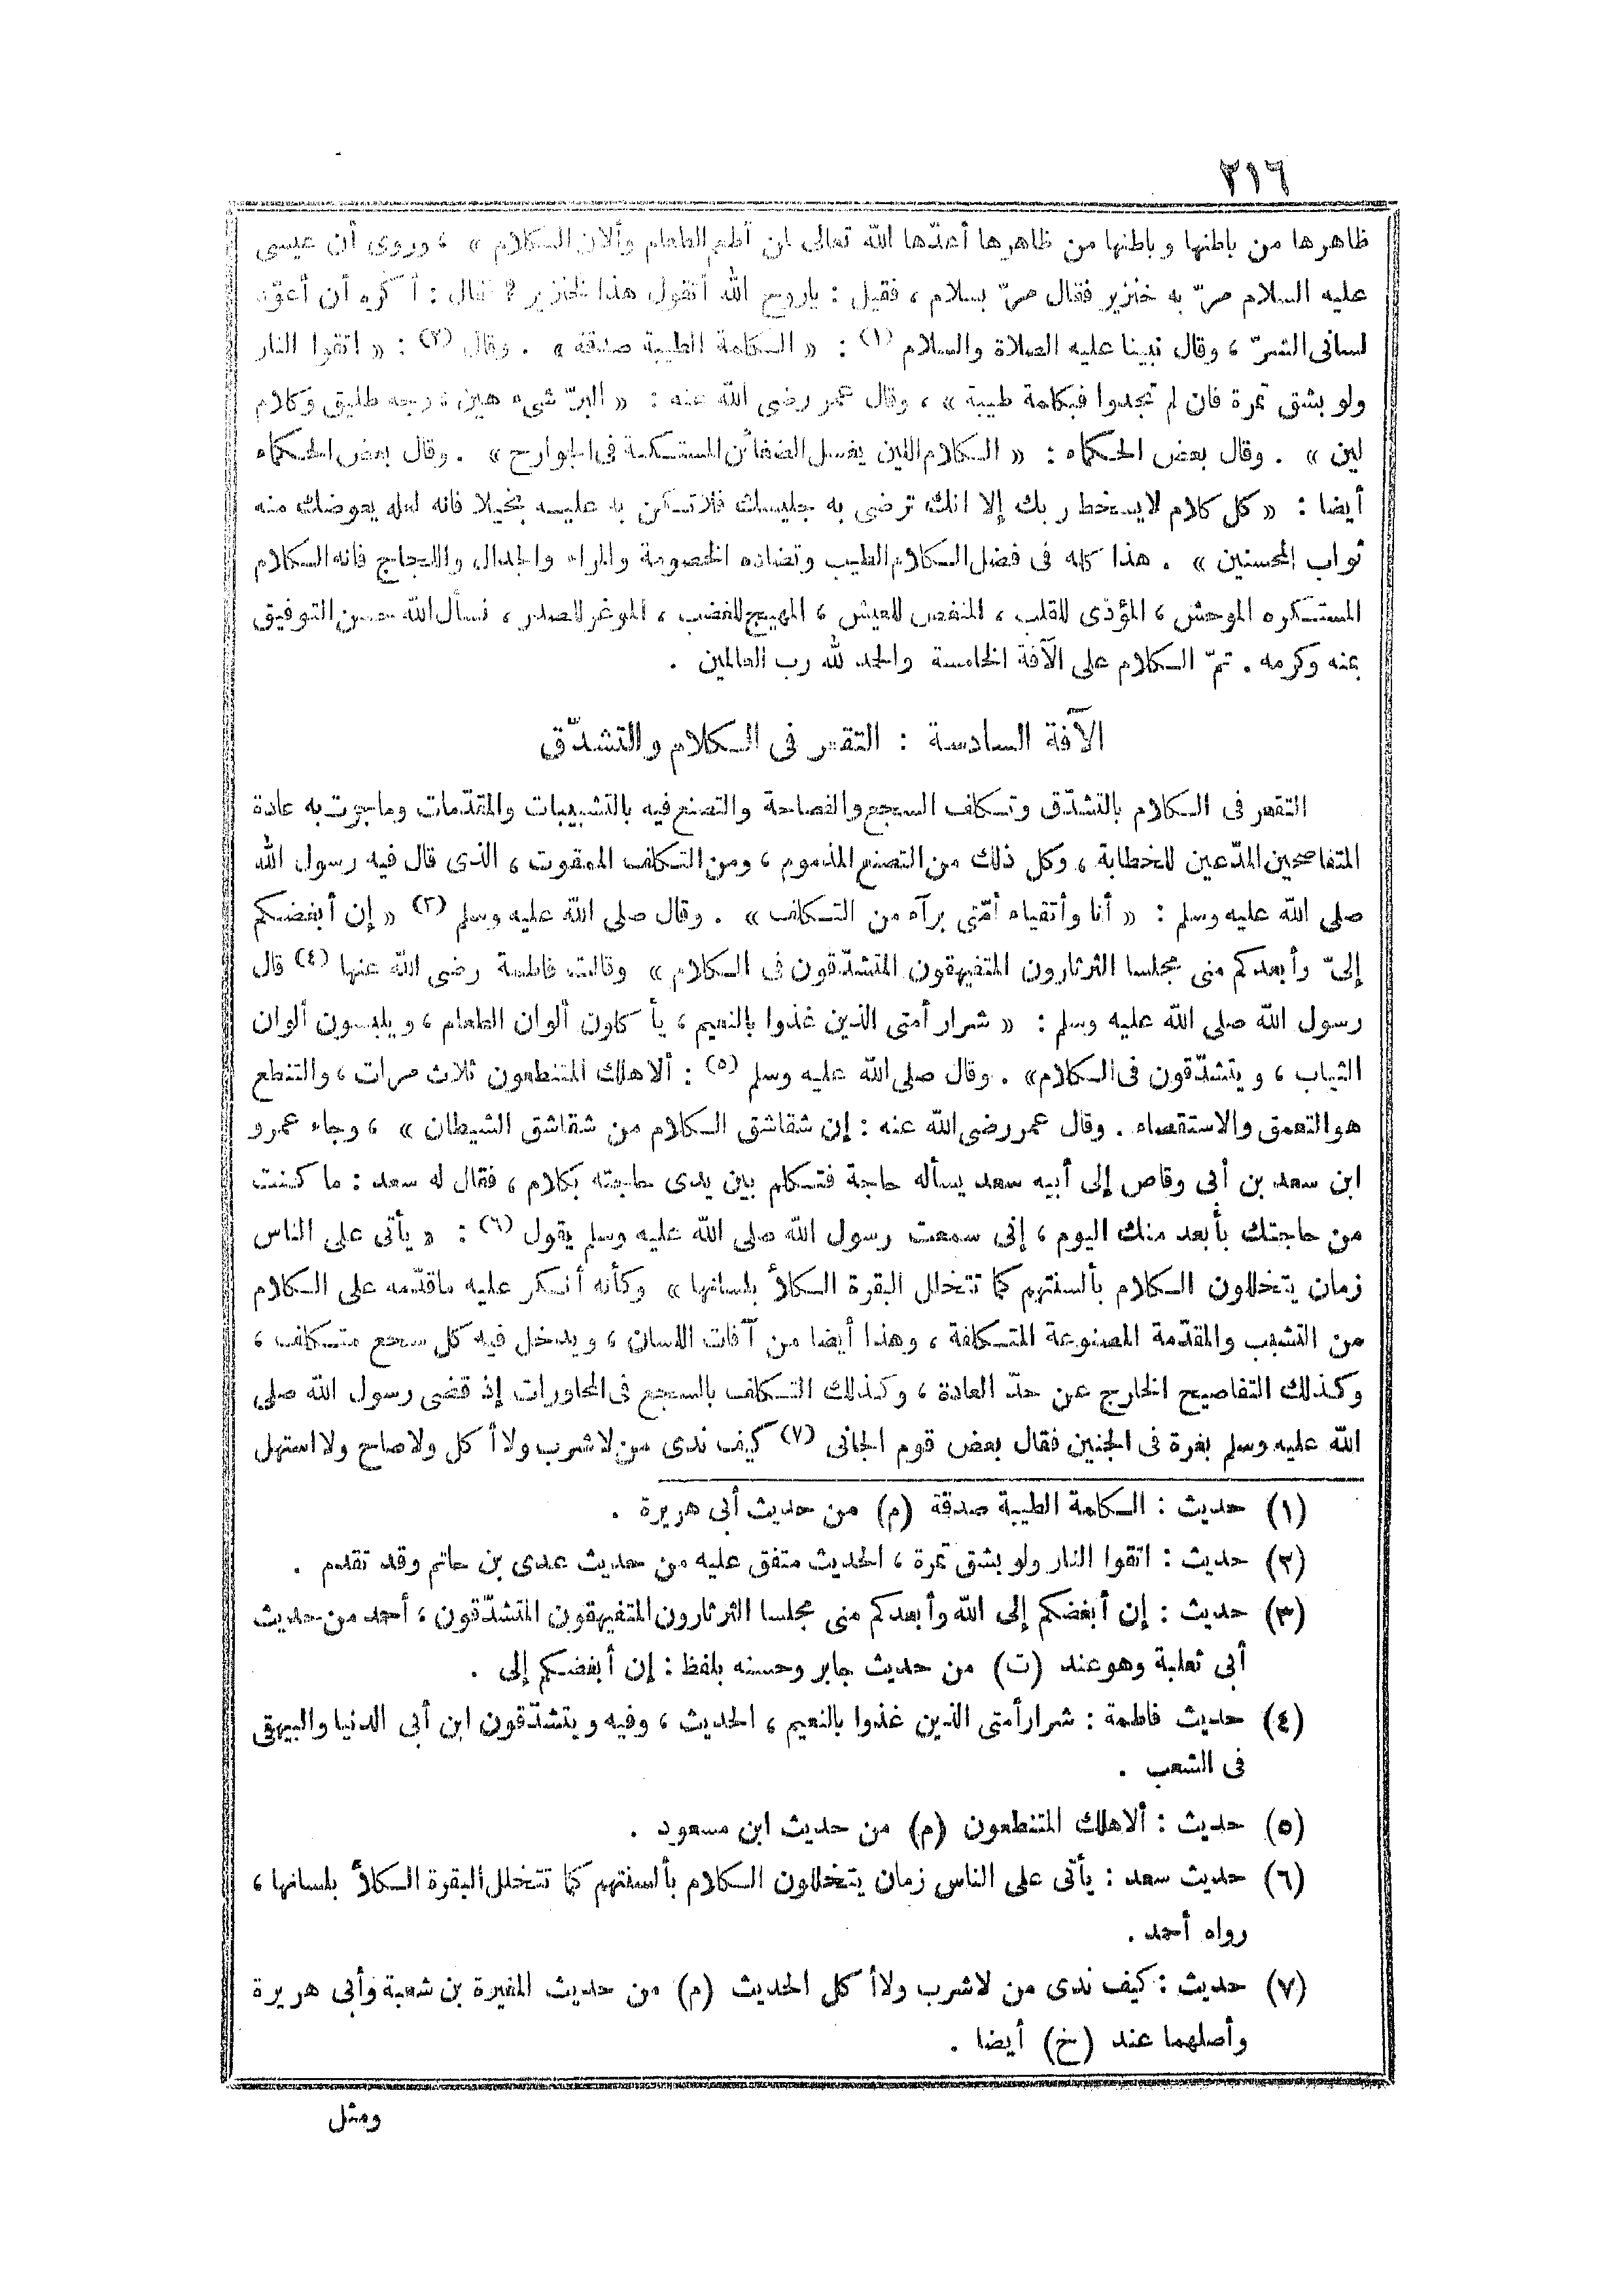 ٣١٦
ظاهرها من باطنها وباطنها من ظاهرها أعدّها الله تعالى لمن أطعم الطعام وألان الكلام » ، وروى أن عيسى
عليه السلام مرّ به خنزير فقال مرّ بسلام ، فقيل : ياروح الله أتقول هذا لخنزير ؟ فقال : أكره أن أعوّد
لسانى الشرّ ، وقال نبينا عليه الصلاة والسلام (١) : « الكلمة الطيبة صدقة » . وقال (٢) : « اتقوا النار
ولو بشق تمرة فان لم تجدوا فبكلمة طيبة » ، وقال عمر رضى الله عنه : « البرّ شىء هين : وجه طليق وكلام
لين » . وقال بعض الحكماء : « الكلام اللين يغسل الضغائن المستكنة فى الجوارح » . وقال بعض الحكماء
أيضا : « كل كلام لايسخط ربك إلا انك ترضى به جليسك فلاتكن به عليه بخيلا فانه لعله يعوضك منه
ثواب المحسنين » . هذا كله فى فضل الكلام الطيب وتضاده الخصومة والمراء والجدال واللجاج فانه الكلام
المستكره الموحش ، المؤذى للقلب ، المنغص للعيش ، المهيج للغضب ، الموغر للصدر ، نسأل الله حسن التوفيق
بمنه وكرمه . تمّ الكلام على الآفة الخامسة والحمد لله رب العالمين .
الآفة السادسة : التقعر فى الكلام والتشدّق
التقعر فى الكلام بالتشدّق وتكلف السجع والفصاحة والتصنع فيه بالتشبيبات والمقدّمات وماجرت به عادة
المتفاصحين المدّعين للخطابة ، وكل ذلك من التصنع المذموم ، ومن التكلف الممقوت ، الذى قال فيه رسول الله
صلى الله عليه وسلم : « أنا وأتقياء أمّتى برآء من التكلف » . وقال صلى الله عليه وسلم (٣) « إن أبغضكم
إلىّ وأبعدكم منى مجلسا الثرثارون المتفيهقون المتشدّقون فى الكلام » وقالت فاطمة رضى الله عنها (٤) قال
رسول الله صلى الله عليه وسلم : « شرار أمتى الذين غذوا بالنعيم ، يأكلون ألوان الطعام ، ويلبسون ألوان
الثياب ، ويتشدّقون فى الكلام» . وقال صلى الله عليه وسلم (٥) : ألاهلك المتنطعون ثلاث مرات ، والتنطع
هوالتعمق والاستقصاء . وقال عمر رضى الله عنه : إن شقاشق الكلام من شقاشق الشيطان » ، وجاء عمرو
ابن سعد بن أبى وقاص إلى أبيه سعد يسأله حاجة فتكلم بين يدى حاجته بكلام ، فقال له سعد : ما كنت
من حاجتك بأبعد منك اليوم ، إنى سمعت رسول الله صلى الله عليه وسلم يقول (٦) : « يأتى على الناس
زمان يتخللون الكلام بألسنتهم كما تتخلل البقرة الكلأ بلسانها » وكأنه أنكر عليه ماقدّمه على الكلام
من التشبب والمقدّمة المصنوعة المتكلفة ، وهذا أيضا من آفات اللسان ، ويدخل فيه كل سجع متكلف ،
وكذلك التفاصح الخارج عن حدّ العادة ، وكذلك التكلف بالسجع فى المحاورات إذ قضى رسول الله صلى
الله عليه وسلم بغرة فى الجنين فقال بعض قوم الجانى (٧) كيف ندى من لاشرب ولاأكل ولاصاح ولااستهل
(١) حديث : الكلمة الطيبة صدقة (م) من حديث أبى هريرة .
(٢) حديث : اتقوا النار ولو بشق تمرة ، الحديث متفق عليه من حديث عدى بن حاتم وقد تقدم .
(٣) حديث : إن أبغضكم إلى الله وأبعدكم منى مجلسا الثرثارون المتفيهقون المتشدّقون ، أحمد من حديث
أبى ثعلبة وهوعند (ت) من حديث جابر وحسنه بلفظ : إن أبغضكم إلى .
(٤) حديث فاطمة : شرارأمتى الذين غذوا بالنعيم ، الحديث ، وفيه ويتشدّقون ابن أبى الدنيا والبيهقى
فى الشعب .
(٥) حديث : ألاهلك المتنطعون (م) من حديث ابن مسعود .
(٦) حديث سعد : يأتى على الناس زمان يتخللون الكلام بألسنتهم كما تتخلل البقرة الكلأ بلسانها ،
رواه أحمد .
(٧) حديث : كيف ندى من لاشرب ولاأكل الحديث (م) من حديث المغيرة بن شعبة وأبى هريرة
وأصلهما عند (خ) أيضا .
ومثل